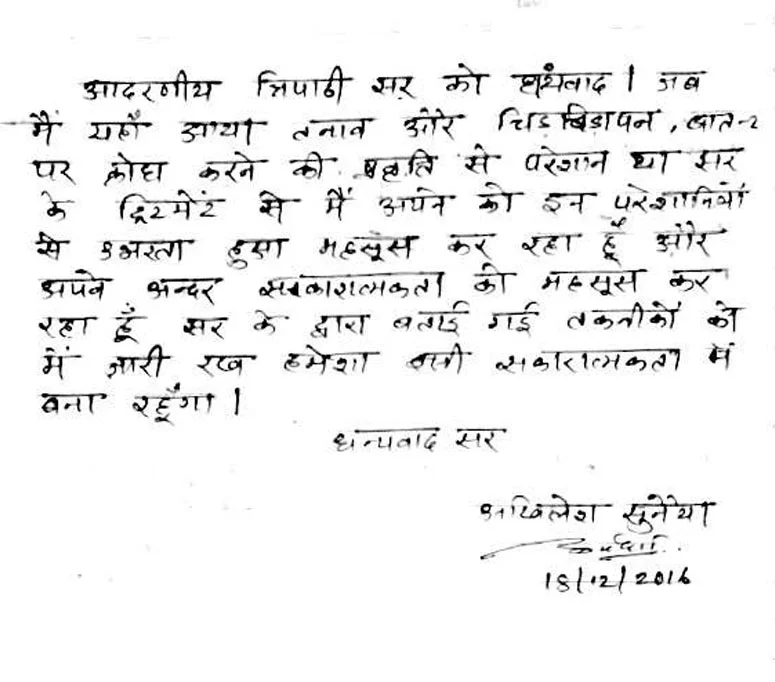 आदरणीय त्रिपाठी सर को धन्यवाद । जब
मैं यहाँ आया तनाव और चिड़चिड़ापन, बात-2
पर क्रोध करने की प्रवृति से परेशान था सर
के ट्रिटमेंट से मैं अपने को इन परेशानियों
से उभरता हुआ महसूस कर रहा हूँ और
अपने अन्दर सकारात्मकता को महसूस कर
रहा हूँ सर के द्वारा बताई गई तकनीकों को
में जारी रख हमेशा इसी सकारात्मकता में
बना रहूँगा ।
धन्यवाद सर
अखिलेश सुनेया
18/12/2016